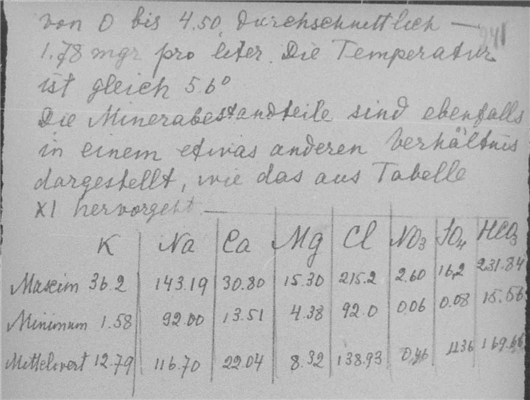 von 0 bis 4.50, durchschnittlich —
1.78 mgr pro liter. Die Temperatur
ist gleich 5.6°
Die Minerabestandteile sind ebenfalls
in einem etwas anderen Verhältnis
dargestellt, wie das aus Tabelle
XI hervorgeht —
K Na Ca Mg Cl NO3 SO4 HCO3
Maxim 36.2 143.19 30.80 15.30 215.2 2.60 16,2 231.84
Minimum 1.58 92.00 13.51 4.38 92.0 0,06 0.08 15.56
Mittelwert 12.79 116.70 22.04 8.32 138.93 0,46 11.36